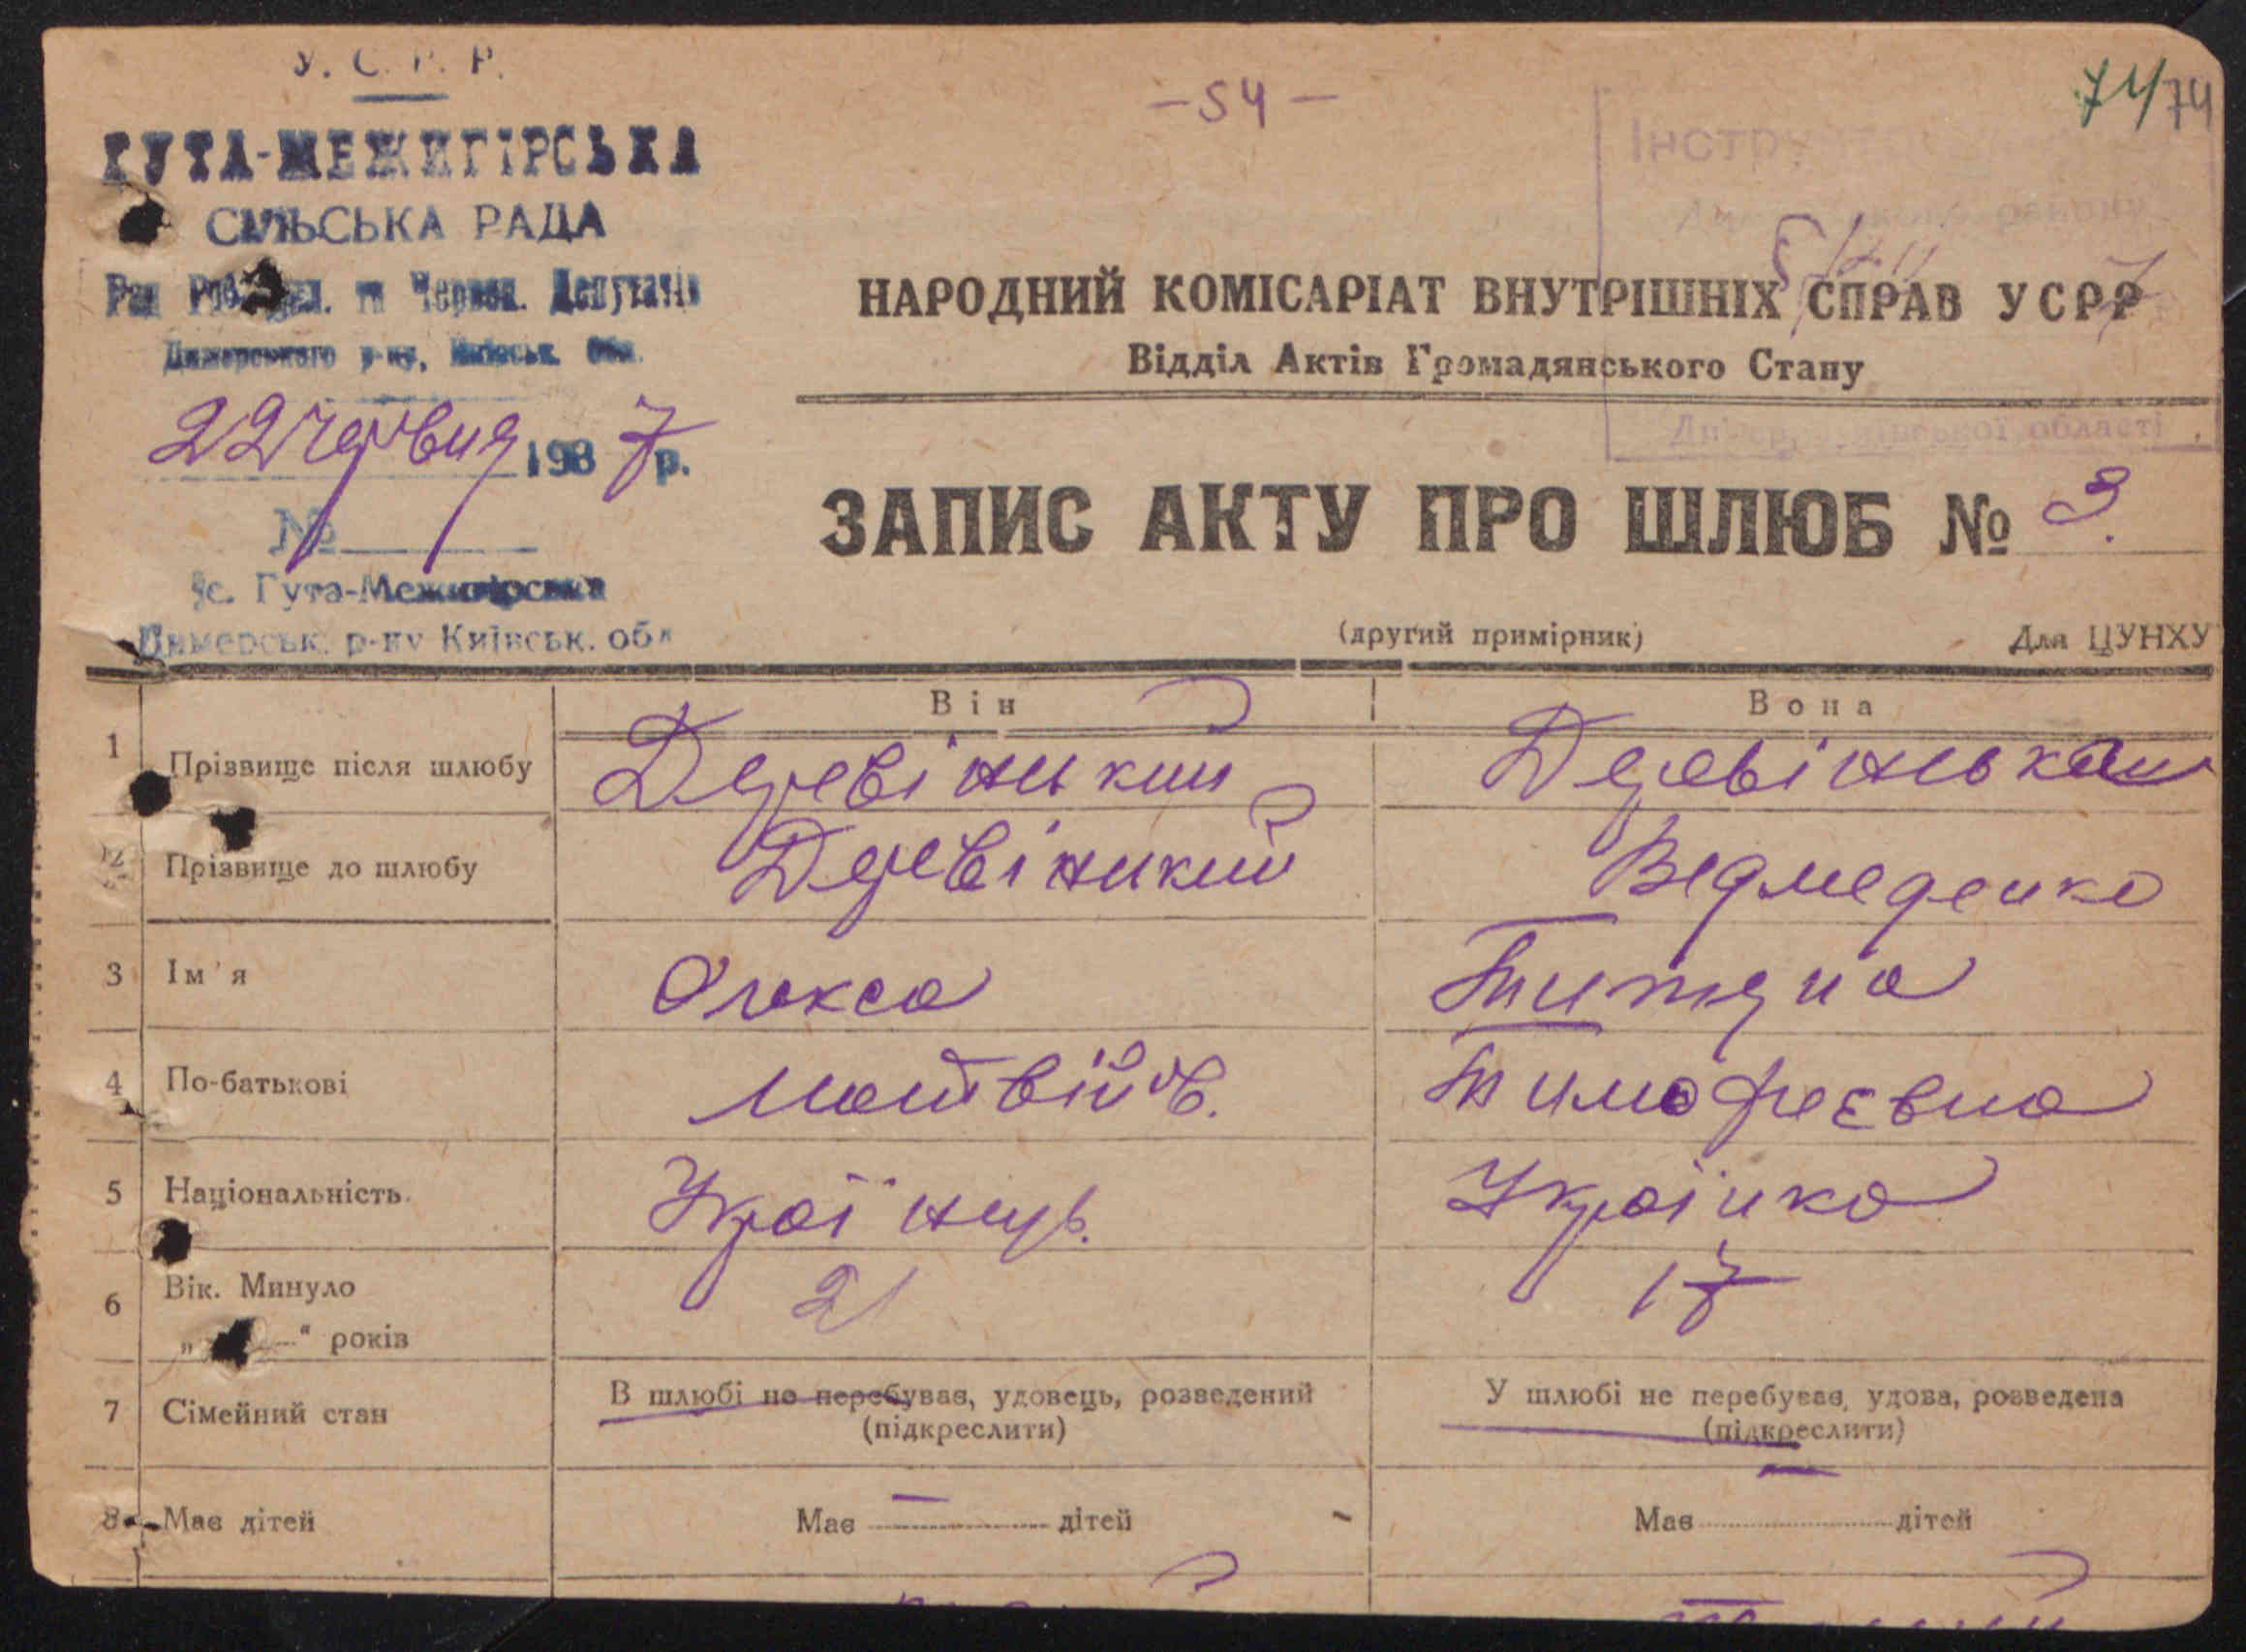 У. С. Р. Р.
- 54 -
74 74
ГУТА-МЕЖИГІРСЬКА
СІЛЬСЬКА РАДА
Рад Роб. та Червон. Депутатів
Димерського р-ну, Київськ. Обл.
22 червня 1937 р.
№
с. Гута-Межигірська
Димерськ. р-ну Київськ. обл
області
НАРОДНИЙ КОМІСАРІАТ ВНУТРІШНІХ СПРАВ УСРР
Відділ Актів Громадянського Стану
ЗАПИС АКТУ ПРО ШЛЮБ № 3.
(другий примірник) Для ЦУНХУ
Він Вона
1 Прізвище після шлюбу Деревінький Деревінькая
2 Прізвище до шлюбу Деревінький Ведмеденко
3 Ім'я Олекса Титяна
4 По-батькові Матвійов. Тимофеєвна
5 Національність Україньць. Українка
6 Вік. Минуло 21 17
„ “ років
7 Сімейний стан В шлюбі не перебував, удовець, розведений У шлюбі не перебував, удова, розведена
(підкреслити) (підкреслити)
8 Має дітей Має — дітей Має — дітей